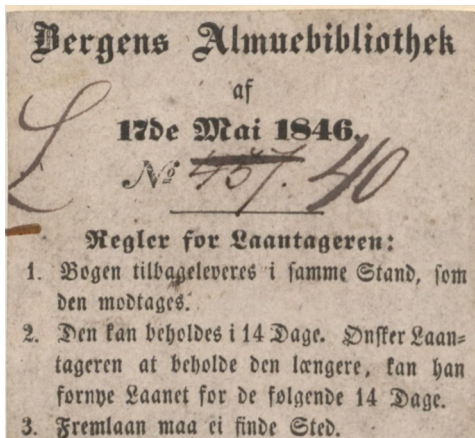 Bergens Almuebibliothek
af
17de Mai 1846.
L № 457. 40
Regler for Laantageren:
1. Bogen tilbageleveres i samme Stand, som
den modtages.
2. Den kan beholdes i 14 Dage. Ønsker Laan-
tageren at beholde den længere, kan han
fornye Laanet for de følgende 14 Dage.
3. Fremlaan maa ei finde Sted.